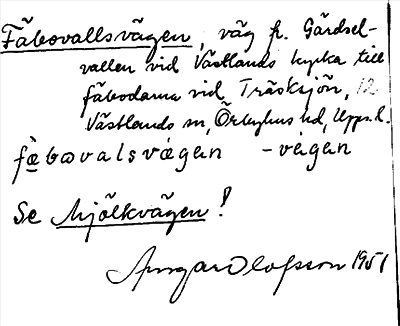 Fäbovallsvägen, väg fr. Gärdsel-
vallen vid Västlands kyrka till
fäbodarna vid Träsksjön, 12
Västlands sn, Örbyhus hd, Upps. l.
fæ̀bovalsvægan -vægan
Se Mjölkvägen!
Ansgar Olofsson 1951